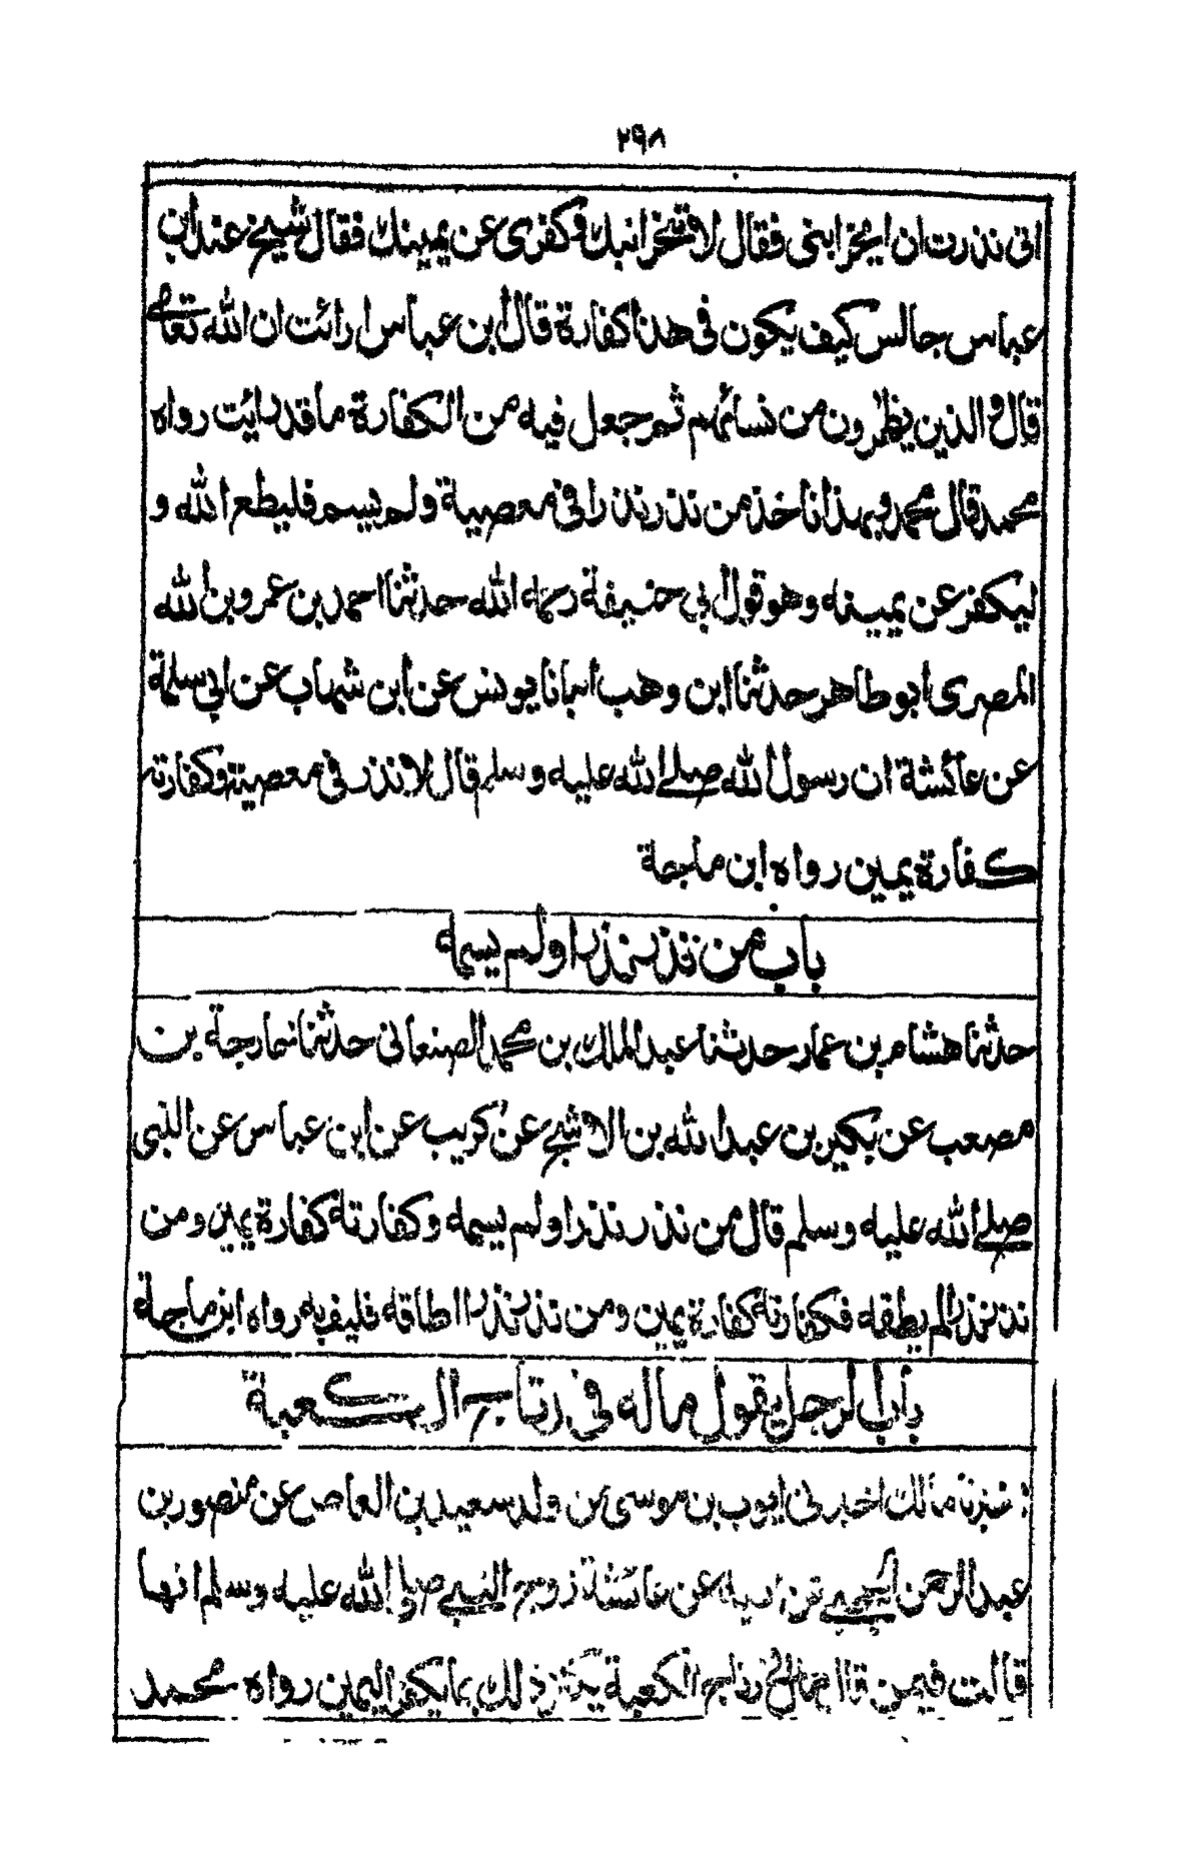 ٢٩٨
انی نذرت ان انحر ابنی فقال لا تنحر ابنك وکفری عن یمینك فقال شیخ عند ابن
عباس جالس کیف یکون فی هذا کفارة قال ابن عباس ارائت ان الله تعالی
قال والذین یظهرون من نسائهم ثم جعل فیه من الکفارة ما قد رائت رواه
محمد قال محمد وبهذا ناخذ من نذر نذرا فی معصیة ولم یسم فلیطع الله و
لیکفر عن یمینه وهو قول ابی حنیفة رحمه الله حدثنا احمد بن عمرو بن الله
المصری ابو طاهر حدثنا ابن وهب انبانا یونس عن ابن شهاب عن ابی سلمة
عن عائشة ان رسول الله صلے الله علیه وسلم قال لا نذر فی معصیة وکفارته
کفارة یمین رواه ابن ماجة
باب من نذر نذرا ولم یسمه
حدثنا هشام بن عمار حدثنا عبد الملك بن محمد الصنعانی حدثنا خارجة بن
مصعب عن بکیر بن عبد الله بن الاشج عن کریب عن ابن عباس عن النبی
صلے الله علیه وسلم قال من نذر نذرا ولم یسمه وکفارته کفارة یمین ومن
نذر نذرا لم یطقه فکفارته کفارة یمین ومن نذر نذرا اطاقه فلیف به رواه ابن ماجة
باب الرجل یقول ماله فی رتاج الکعبة
اخبرنا مالك اخبرنی ایوب بن موسی من ولد سعید بن العاص عن منصور بن
عبد الرحمن الحجبے عن ابیه عن عائشة زوج النبے صلے الله علیه وسلم انها
قالت فیمن قال مالی فی رتاج الکعبة یکفر ذلك بما یکفر الیمین رواه محمد